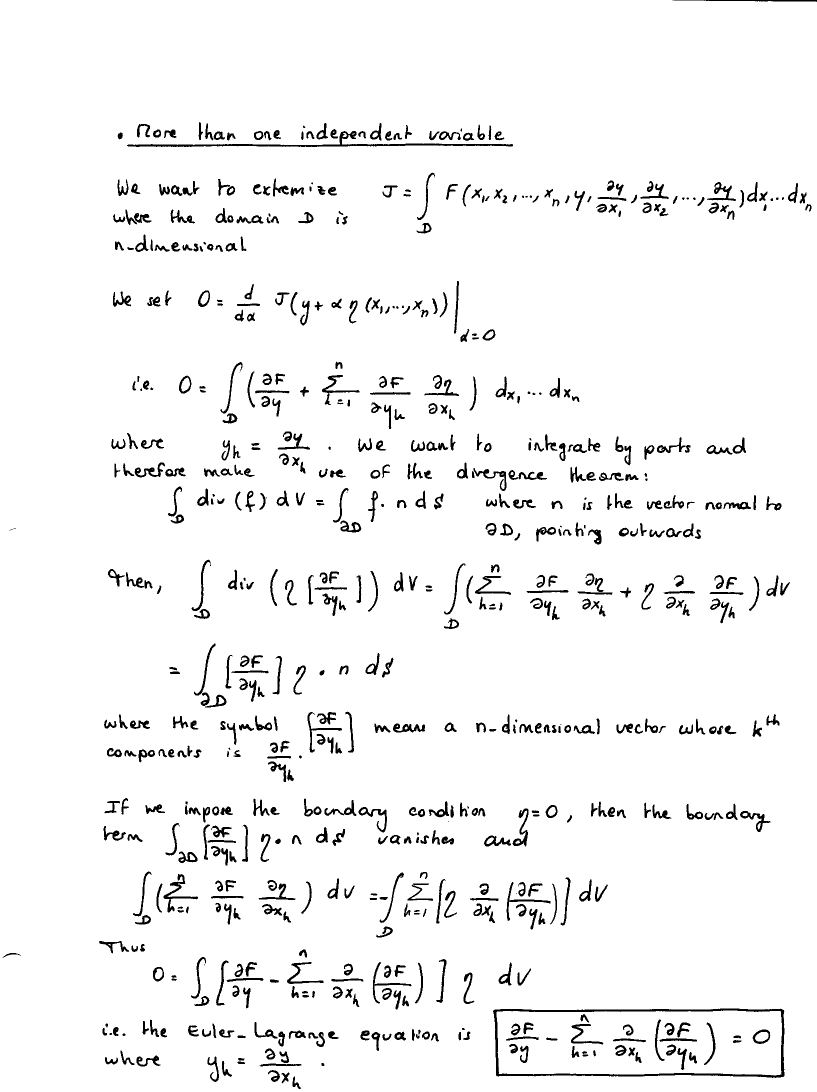 • More than one independent variable
We want to extremize J = ∫_D F(x₁, x₂, ..., xₙ, y, ∂y/∂x₁, ∂y/∂x₂, ..., ∂y/∂xₙ) dx₁...dxₙ
where the domain D is
n-dimensional
We set 0 = d/dα J(y + α η(x₁,...,xₙ))|_{α=0}
i.e. 0 = ∫_D (∂F/∂y + Σ_{k=1}^n ∂F/∂y_k ∂η/∂x_k) dx₁ ... dxₙ
where y_k = ∂y/∂x_k . We want to integrate by parts and
therefore make use of the divergence theorem:
∫_D div (f) dV = ∫_{∂D} f · n dS where n is the vector normal to
∂D, pointing outwards
Then, ∫_D div (η [∂F/∂y_k]) dV = ∫_D (Σ_{k=1}^n ∂F/∂y_k ∂η/∂x_k + η ∂/∂x_k ∂F/∂y_k) dV
= ∫_{∂D} [∂F/∂y_k] η · n dS
where the symbol [∂F/∂y_k] means a n-dimensional vector whose k^th
components is ∂F/∂y_k .
If we impose the boundary condition η=0, then the boundary
term ∫_{∂D} [∂F/∂y_k] η · n dS vanishes and
∫_D (Σ_{k=1}^n ∂F/∂y_k ∂η/∂x_k) dV = -∫_D Σ_{k=1}^n [η ∂/∂x_k (∂F/∂y_k)] dV
Thus
0 = ∫_D [∂F/∂y - Σ_{k=1}^n ∂/∂x_k (∂F/∂y_k)] η dV
i.e. the Euler-Lagrange equation is ∂F/∂y - Σ_{k=1}^n ∂/∂x_k (∂F/∂y_k) = 0
where y_k = ∂y/∂x_k .